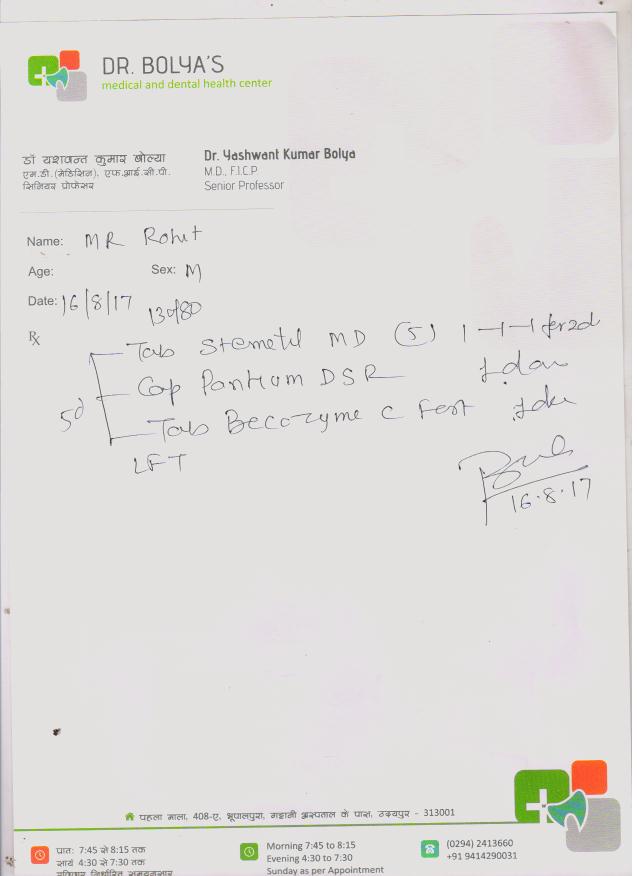 DR. BOLYA'S
medical and dental health center
डॉ यशवन्त कुमार बोल्या
एम.डी.(मेडिसिन), एफ.आई.सी.पी.
सिनियर प्रोफेसर
Dr. Yashwant Kumar Bolya
M.D., F.I.C.P
Senior Professor
Name: MR Rohit
Age: Sex: M
Date: 16/8/17
130/80
Rx
Tab Stemetil MD (5) 1-1-1 for 2d
Cap Pantium DSR
5d
Tab Becozyme C Fort
LFT
16.8.17
पहला माला, 408-ए, भूपालपुरा, मट्टानी अस्पताल के पास, उदयपुर - 313001
प्रातः 7:45 से 8:15 तक
सायं 4:30 से 7:30 तक
रविवार निर्धारित समयनुसार
Morning 7:45 to 8:15
Evening 4:30 to 7:30
Sunday as per Appointment
(0294) 2413660
+91 9414290031